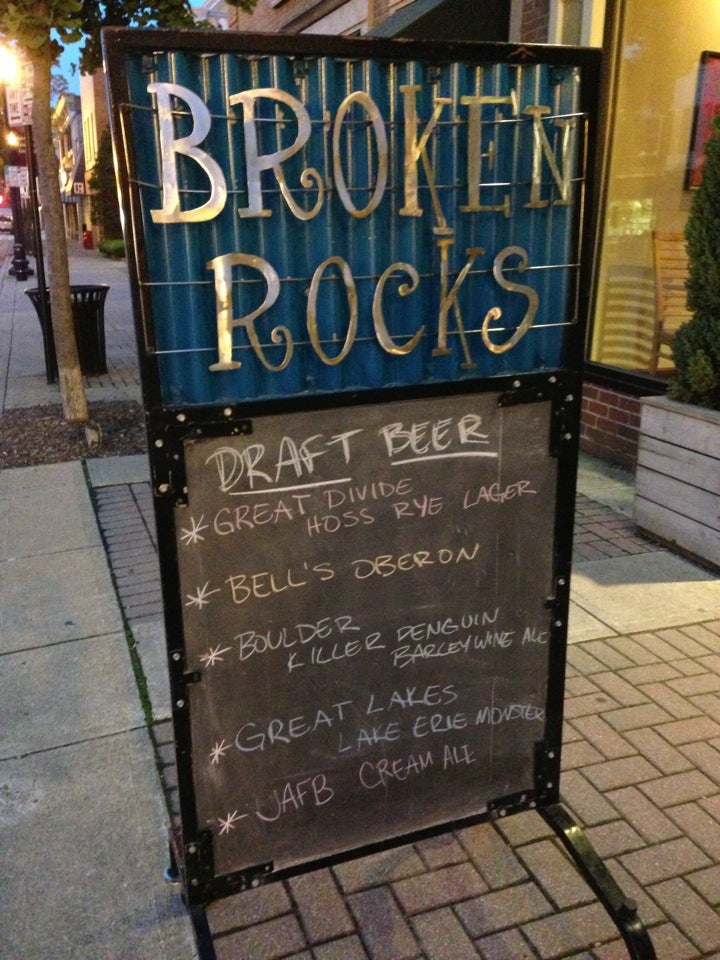 BROKEN
ROCKS
DRAFT BEER
* GREAT DIVIDE
HOSS RYE LAGER
* BELL'S OBERON
* BOULDER
KILLER PENGUIN
BARLEYWINE ALE
* GREAT LAKES
LAKE ERIE MONSTER
* JAFB CREAM ALE